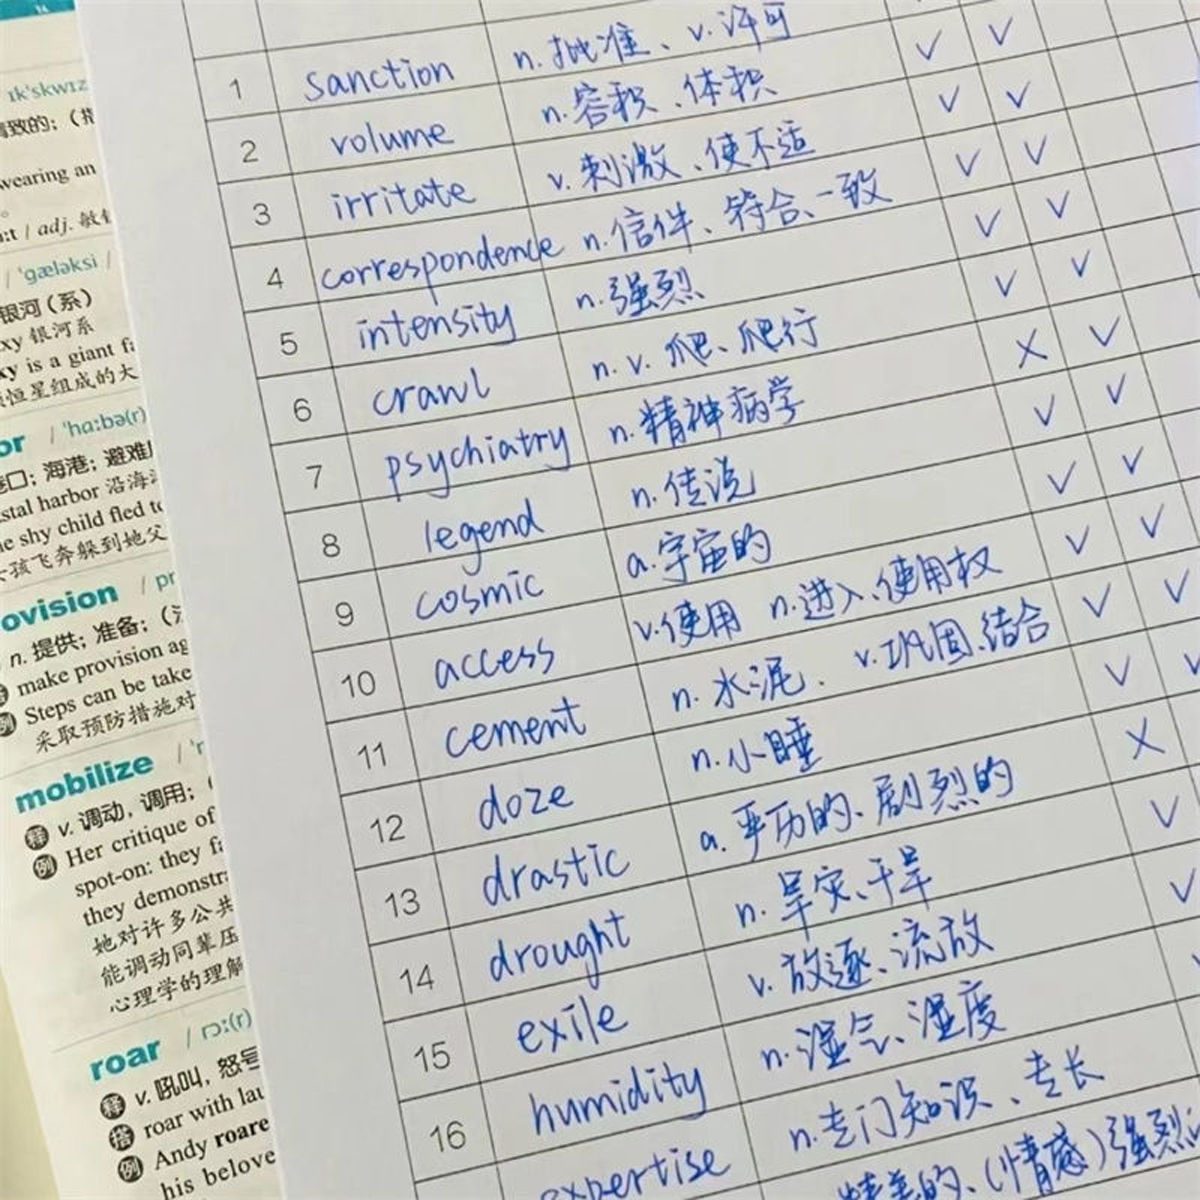 ɪk'skwɪz
wearing an
/ adj.
/ 'gæləksi /
银河（系）
xy 银河系
xy is a giant
恒星组成的大
or / 'hɑːbə(r)
海港；避难
stal harbor 沿海
shy child fled to
孩飞奔躲到她父
ovision / pr
n. 提供；准备；
make provision ag
Steps can be take
采取预防措施对
mobilize /
释 v. 调动，调用；
例 Her critique of
spot-on: they
they demonstr
她对许多公共
能调动同辈压
心理学的理解
roar / rɔː(r)
释 v. 吼叫，怒号
搭 roar with lau
例 Andy roare
his belove
1 sanction n. 批准、v. 许可 √ √
2 volume n. 容积、体积 √ √
3 irritate v. 刺激、使不适 √ √
4 correspondence n. 信件、符合、一致 √ √
5 intensity n. 强烈 √ √
6 crawl n. v. 爬、爬行 × √
7 psychiatry n. 精神病学 √ √
8 legend n. 传说 √ √
9 cosmic a. 宇宙的 √ √
10 access v. 使用 n. 进入、使用权 √ √
11 cement n. 水泥. v. 巩固、结合 √ √
12 doze n. 小睡 ×
13 drastic a. 严厉的、剧烈的 √
14 drought n. 旱灾、干旱 √
15 exile v. 放逐、流放
16 humidity n. 湿气、湿度
expertise n. 专门知识、专长
（情感）强烈